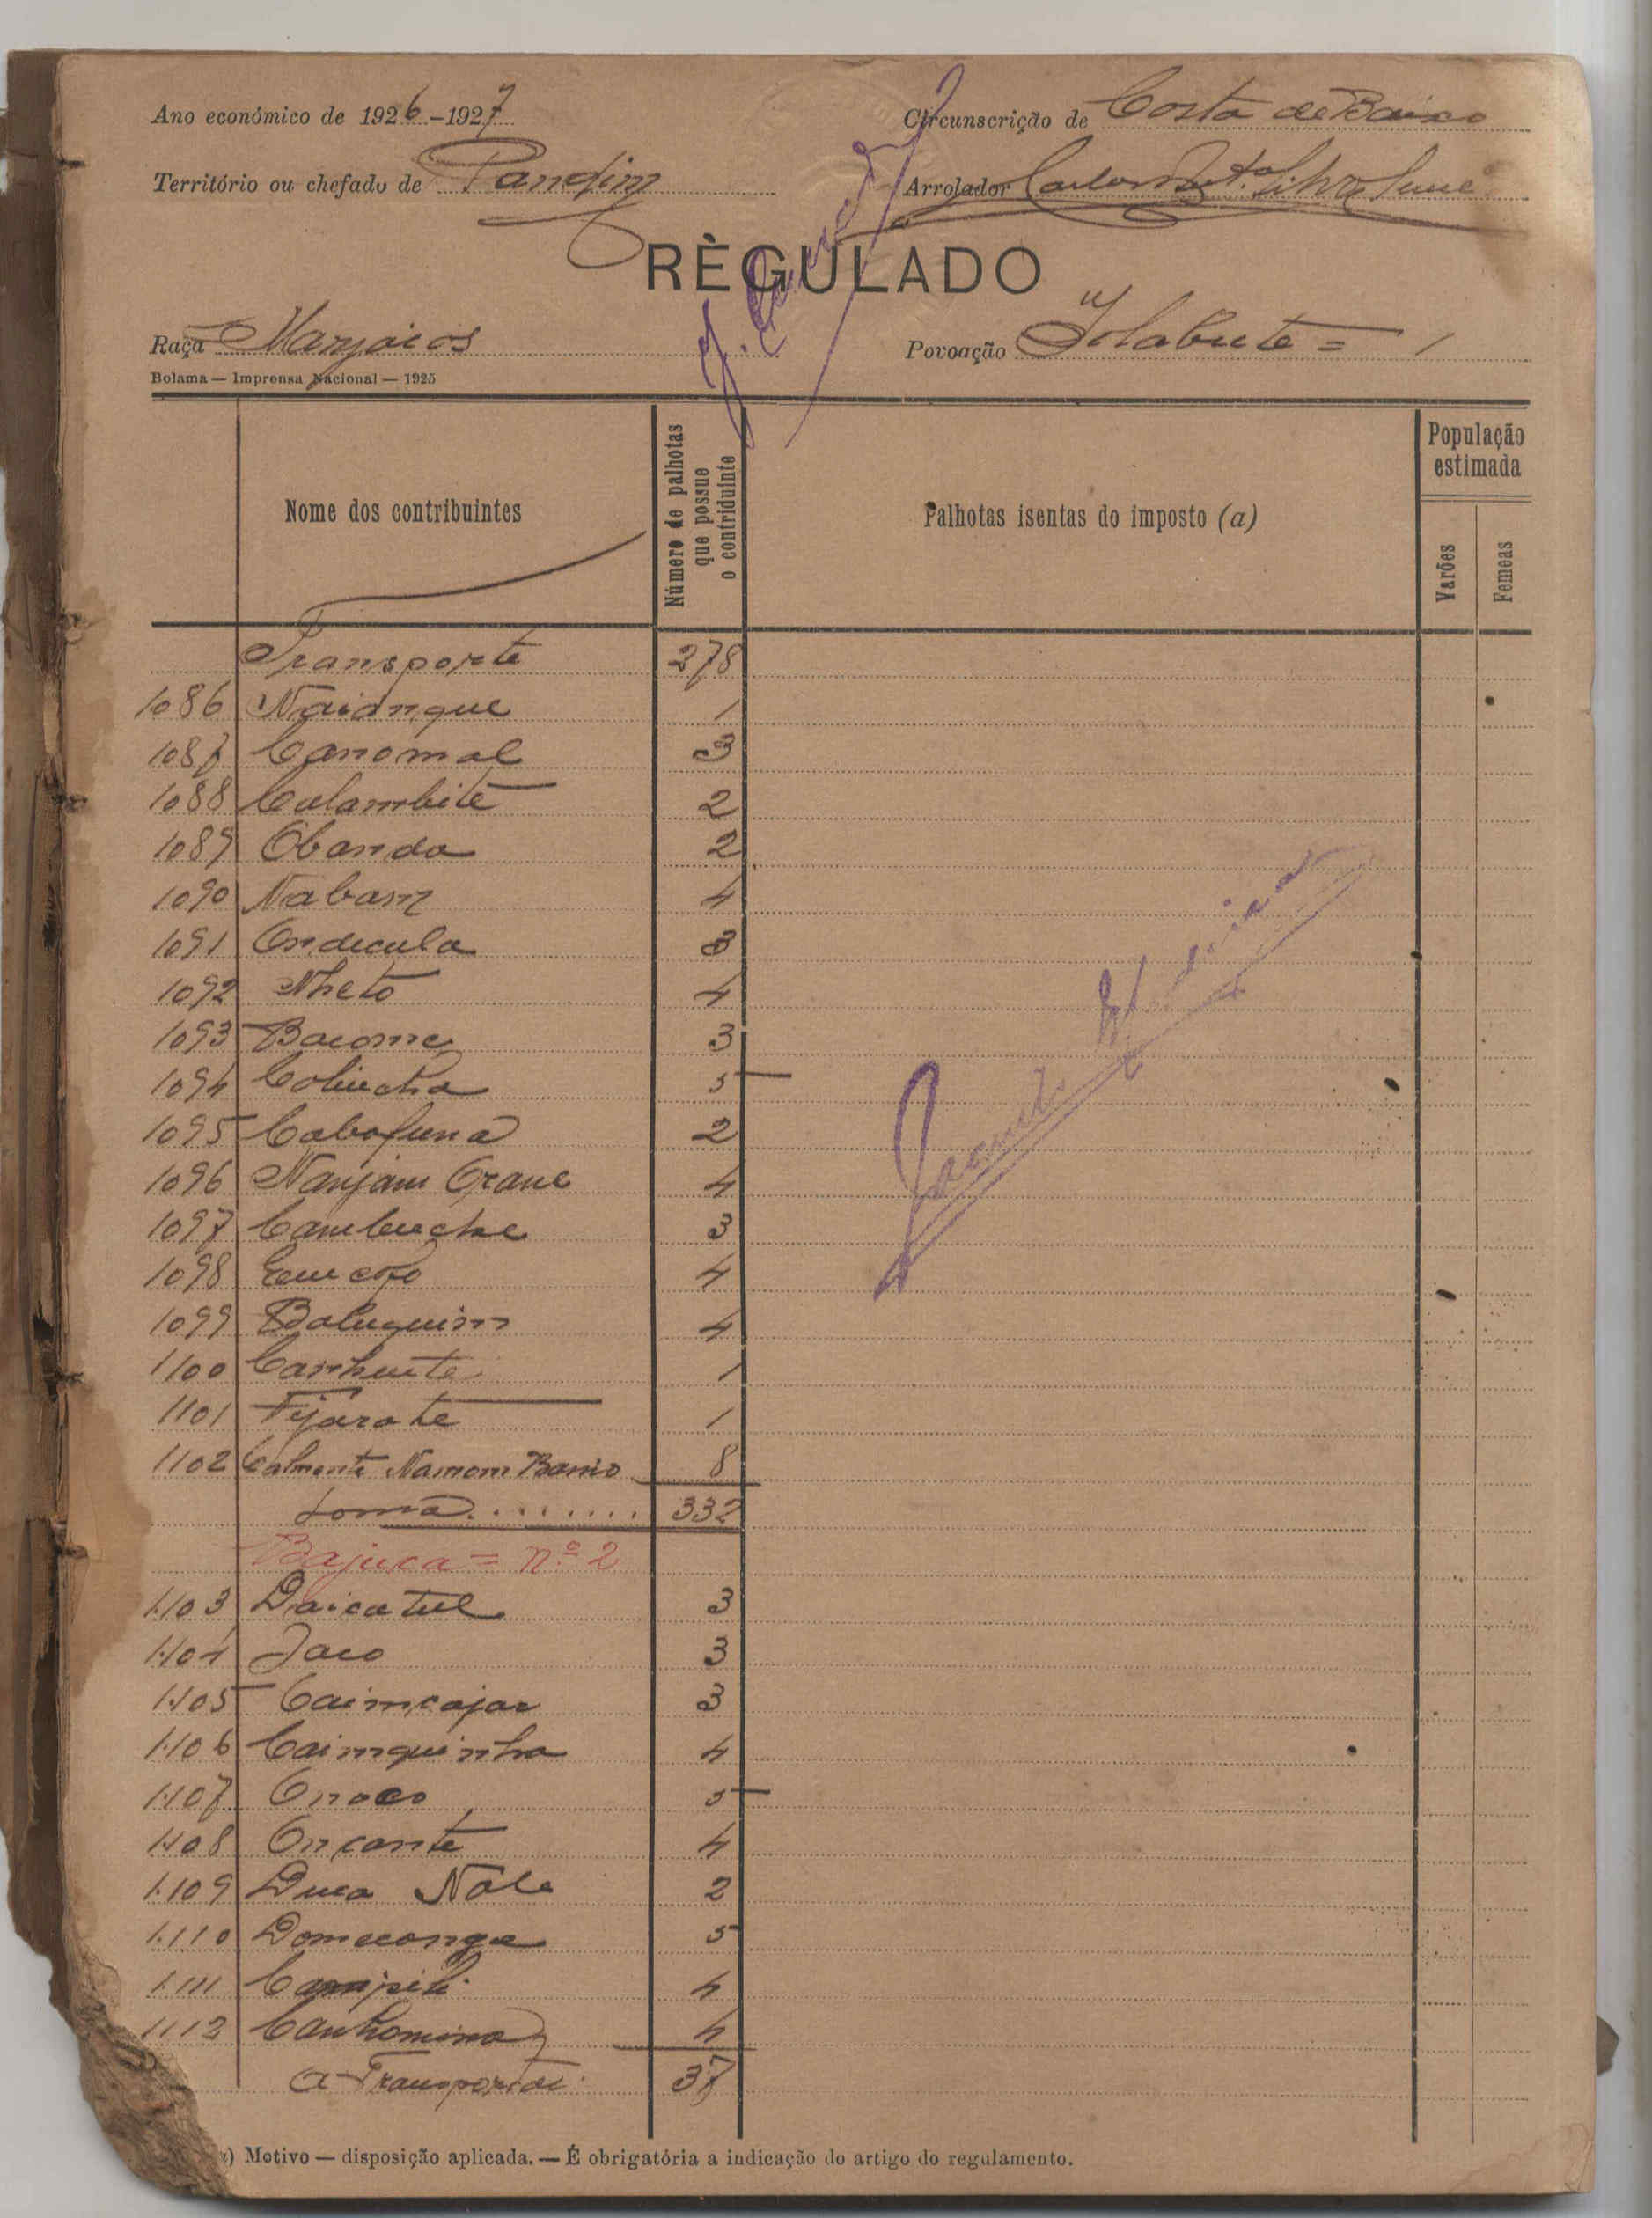 Ano económico de 1926-1927
Circunscrição de Costa de Baixo
Território ou chefado de Pandim
Arrolador Carlos Silva
RÈGULADO
Raça Manjacos
Povoação = 1
Bolama — Imprensa Nacional — 1925
Nome dos contribuintes
Número de palhotas que possue o contriduinte
Palhotas isentas do imposto (a)
População estimada
Varões
Femeas
Transporte 278
1086 Naianque 1
1087 Canomal 3
1088 Culambite 2
1089 Obanda 2
1090 Nabam 4
1091 Ondecula 3
1092 Nheto 4
1093 Baiome 3
1094 5
1095 Cabofuna 2
1096 Nanjam 4
1097 Cambuche 3
1098 4
1099 Baluquim 4
1100 Canhute 1
1101 Fijarote 1
1102 Calmente Namom 8
Soma........ 332
Bajuca = nº 2
1103 Daicatul 3
1104 Jaco 3
1105 Caimcajar 3
1106 Caimquinha 4
1107 Onoco 5
1108 Oncante 4
1109 Duca Nale 2
1110 5
1111 4
1112 Canhomina 4
A Transportar 37
) Motivo — disposição aplicada. — É obrigatória a indicação do artigo do regulamento.